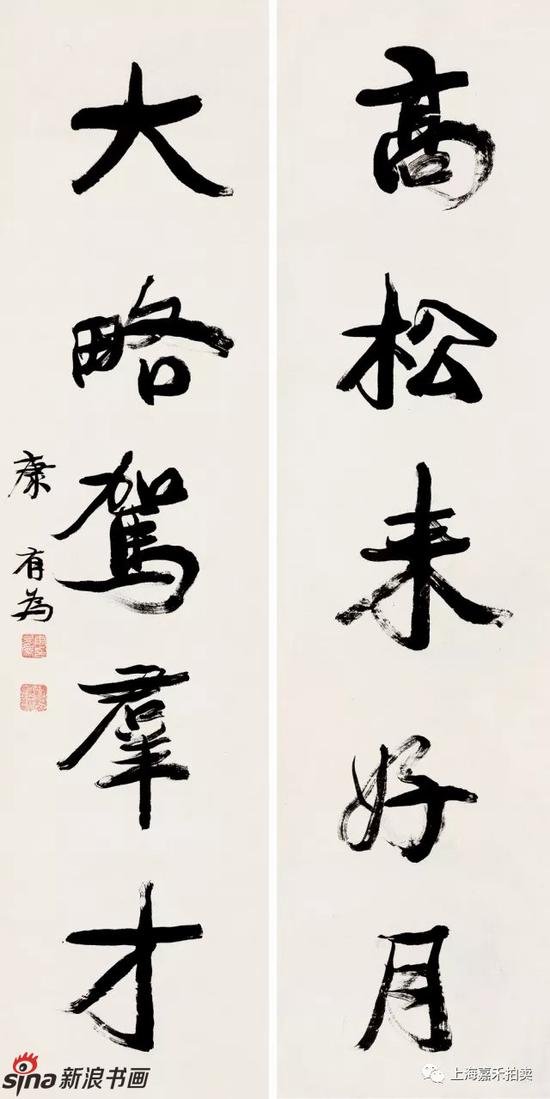 高松来好月
大略駕羣才
康有為
sina新浪书画
上海嘉禾拍卖